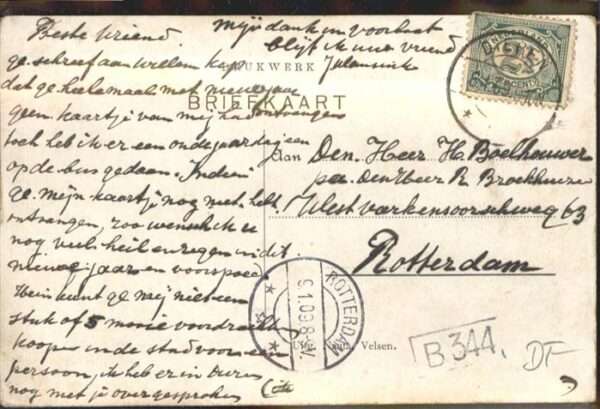 Beste Vriend
ge schreef aan Willem
dat ge heelemaal met nieuwjaar
geen kaartje van mij had ontvangen
toch heb ik er een oudejaardag een
op de bus gedaan Indien
ge mijn kaartje nog niet hebt
ontvangen, zoo wensch ik u
nog veel heil en zegen in dit
nieuwe jaar en voorspoed
Hein kunt ge mij niet een
stuk of 5 mooie voordrachten
koopen in de stad voor een
persoon, ik heb er in
nog met je over gesproken
Mijn dank in voorbaat
blijf ik uw vriend
DRUKWERK
BRIEFKAART
Aan Den Heer H. Boelhouwer
p/a. Den Heer R. Broekhuizen
West varkensoorscheweg 63
Rotterdam
NEDERLAND
ROTTERDAM
6.1.09. 8-9V.
Uitg. Nauta, Velsen.
B 344.
DF